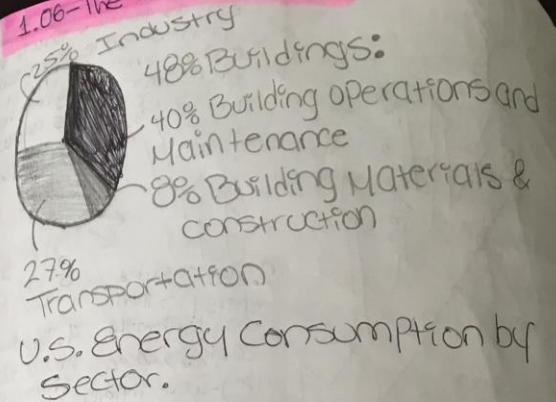 1.06-The
25% Industry
48% Buildings:
40% Building operations and
Maintenance
8% Building Materials &
construction
27%
Transportation
U.S. Energy Consumption by
Sector.